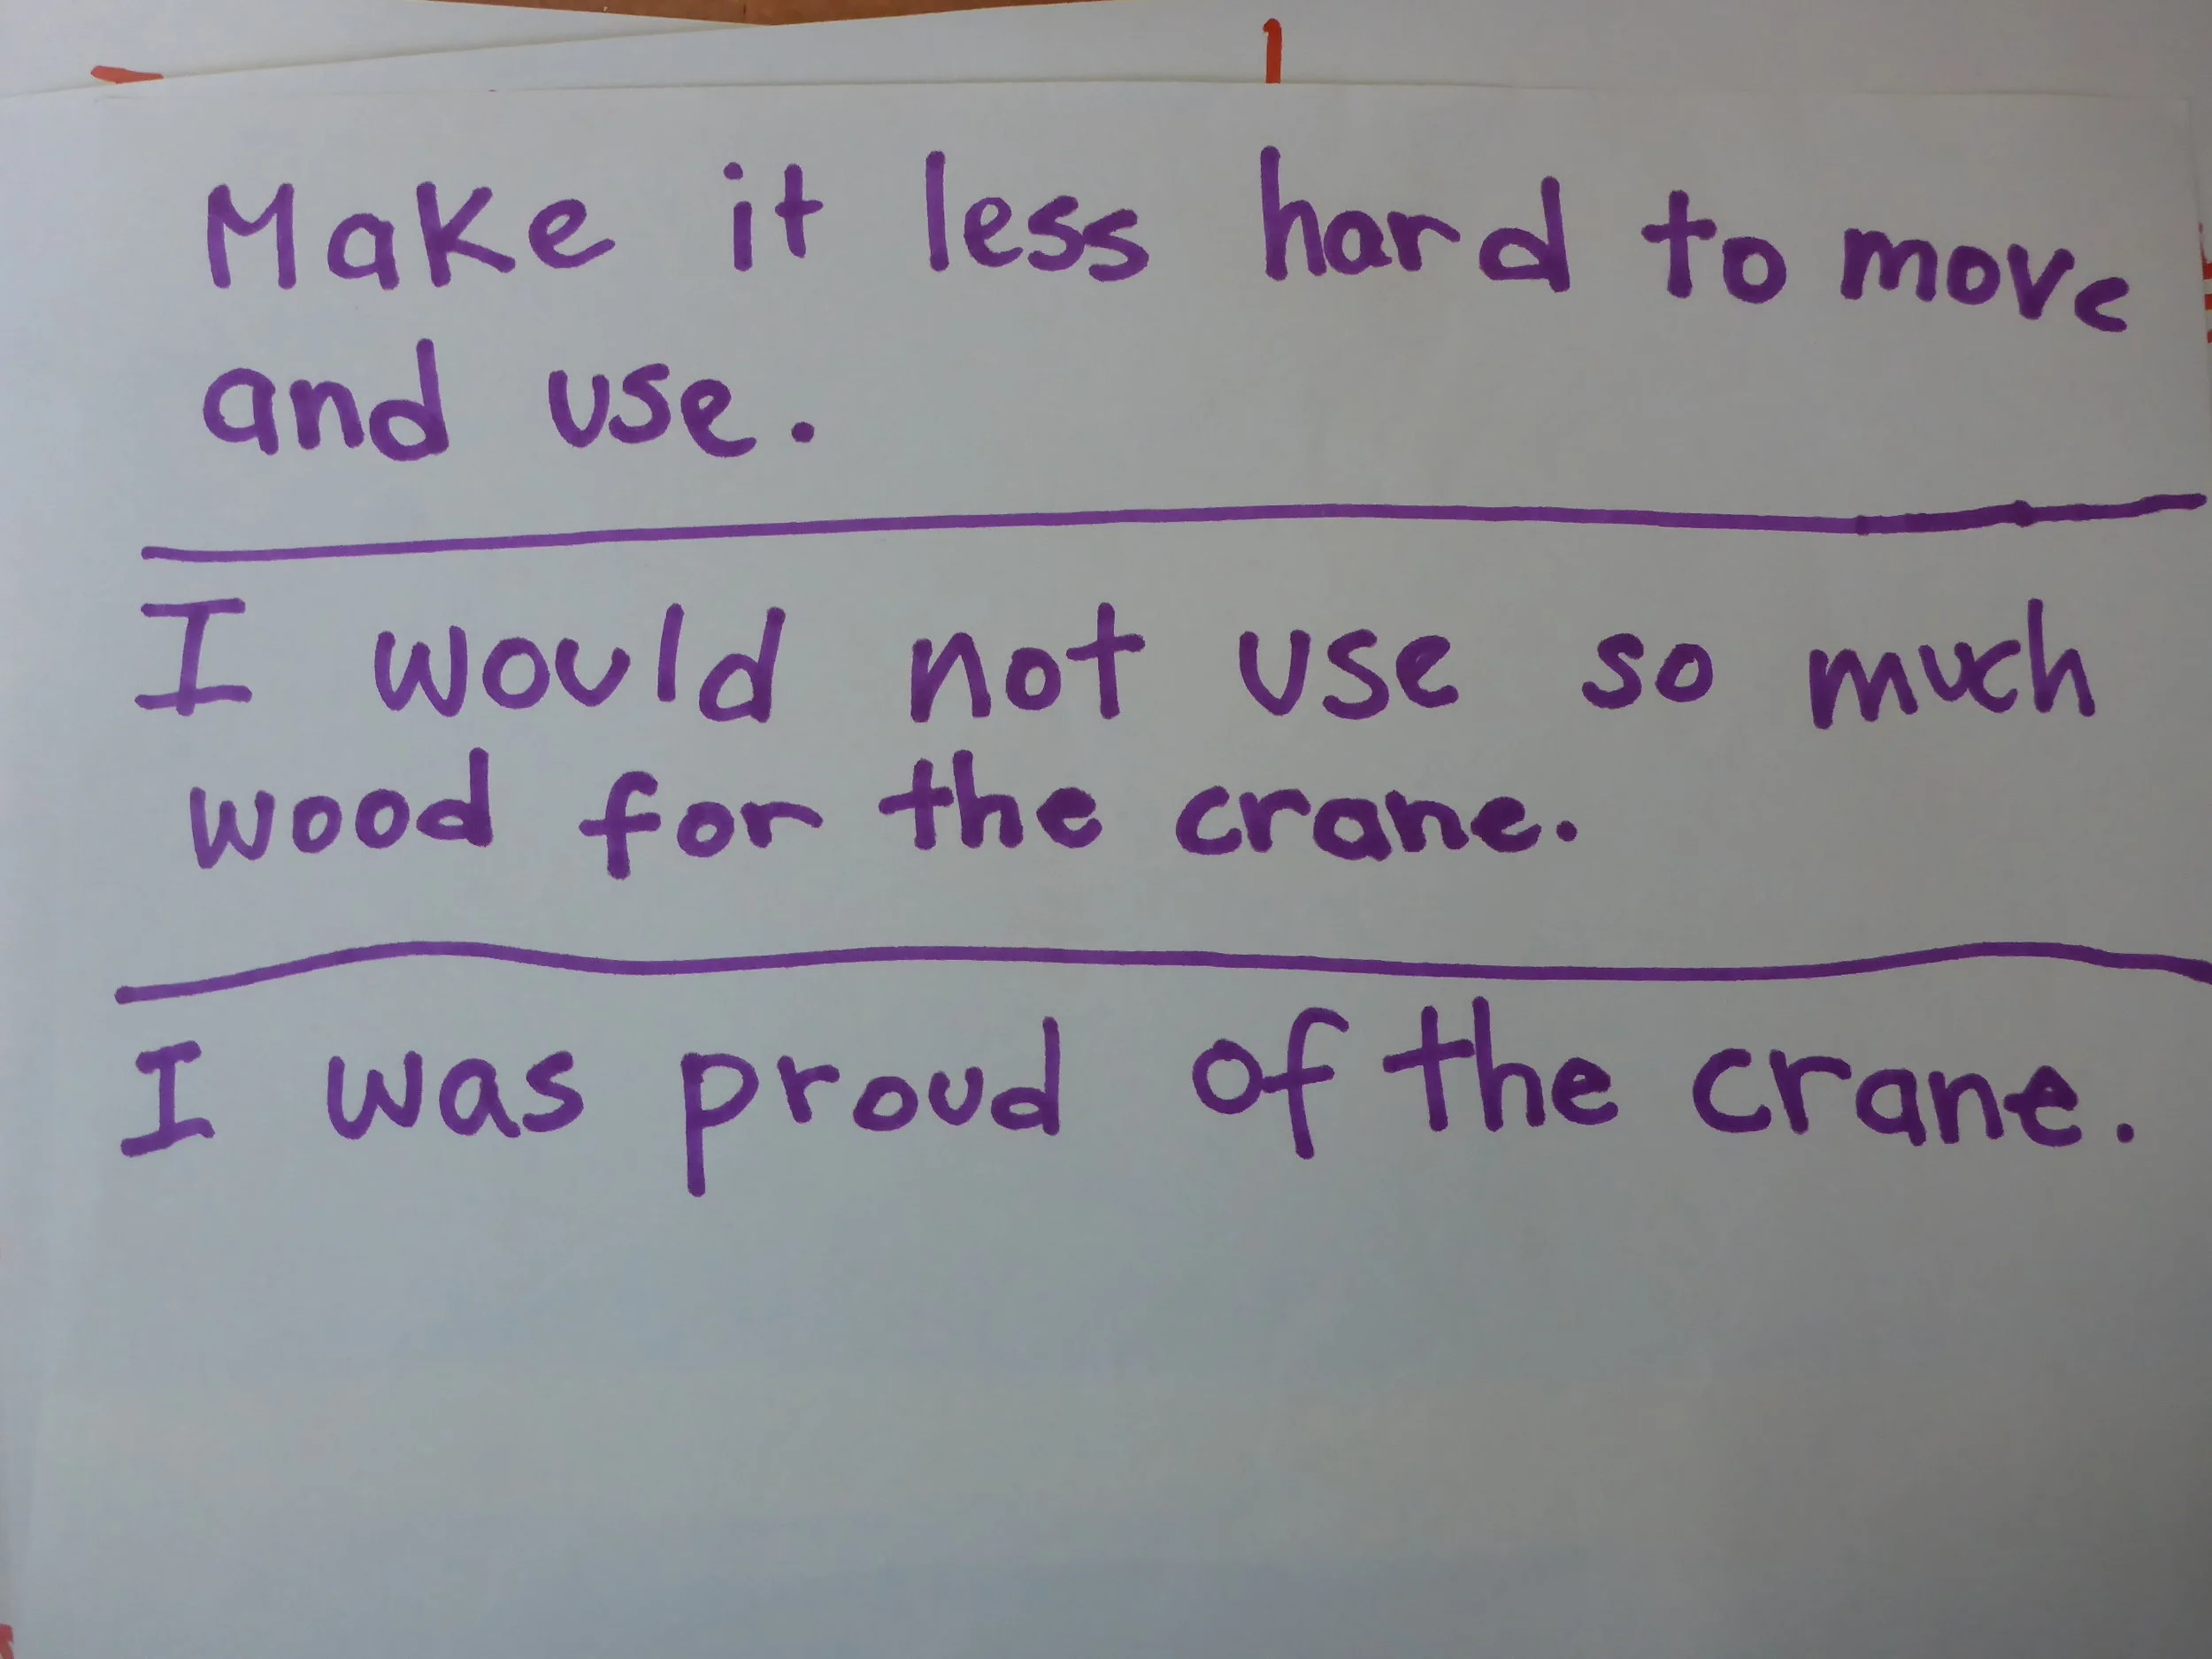 Make it less hard to move
and use.
I would not use so much
wood for the crane.
I was proud of the crane.